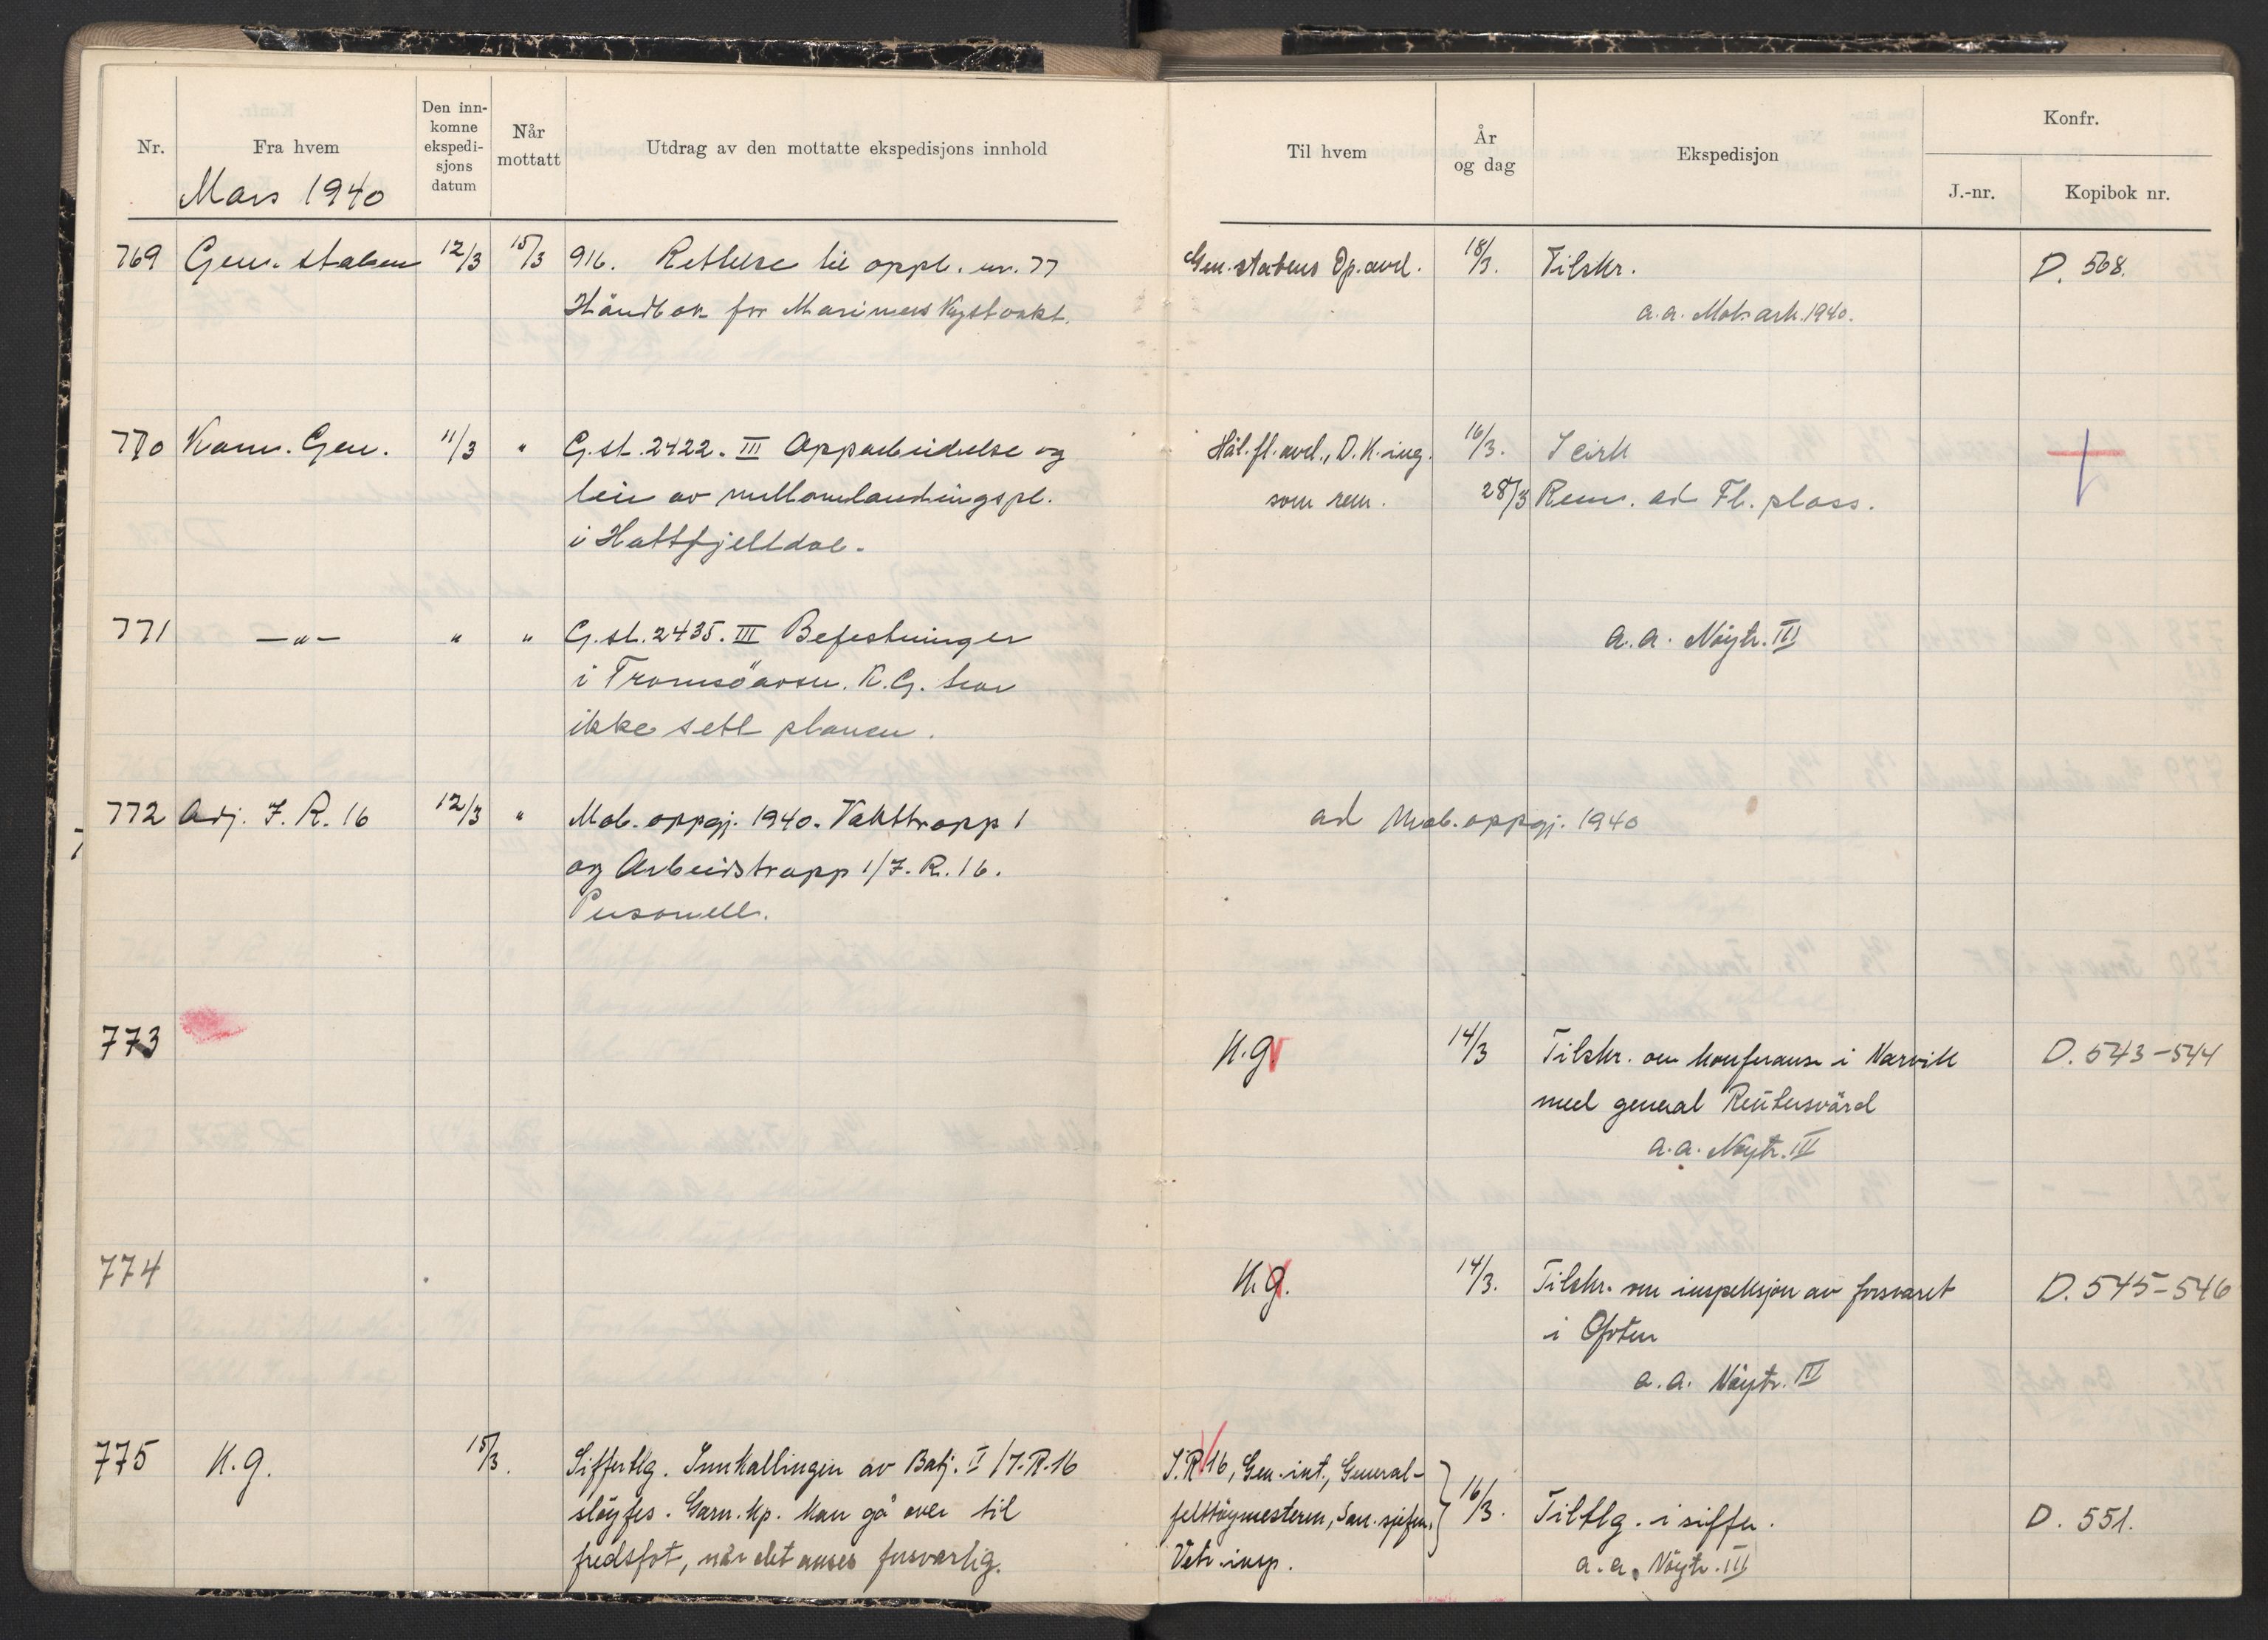 Nr.
Fra hvem
Den inn-
komne
ekspedi-
sjons
datum
Når
mottatt
Utdrag av den mottatte ekspedisjons innhold
Til hvem
År
og dag
Ekspedisjon
Konfr.
J.-nr.
Kopibok nr.
Mars 1940
769 Gen. staben 12/3 15/3 916. Rettelse til oppl. nr. 77
Håndbok for Marinens Kystvakt.
Gen. stabens Op. avd. 18/3. Tilskr. D. 568.
a.a. Mob. ark. 1940.
770 Kom. Gen. 11/3 " G.st. 2422. III Opparbeidelse og
leie av mellomlandingspl.
i Hattfjelldal.
Hål. fl. avd., D.K. ing. 16/3. I sirk
som rem. 28/3 Rem. ad Fl. plass.
771 —"— " " G.st. 2435. III Befestninger
i Tromsöavsn. K.G. har
ikke sett planen.
a.a. Nöytr. III
772 Adj. I.R. 16 12/3 " Mob. oppgj. 1940. Vakttropp 1
og Arbeidstropp 1/I.R. 16.
Personell.
ad Mob. oppgj. 1940
773
K.G. 14/3 Tilskr. om konferanse i Narvik D. 543-544
med general Reutersvärd
a.a. Nöytr. III
774
K.G. 14/3. Tilskr. om inspeksjon av forsvaret D. 545-546
i Ofoten
a.a. Nöytr. III
775 K.G. 15/3. Siffertlg. Innkallingen av Batj. II/I.R. 16
slöyfes. Garn. kp. kan gå over til
fredsfot, når det anses forsvarlig.
I.R. 16, Gen. int., General-
felttöymesteren, San. sjefen,
Vet. insp.
16/3. Tiltlg. i siffer. D. 551.
a.a. Nöytr. III